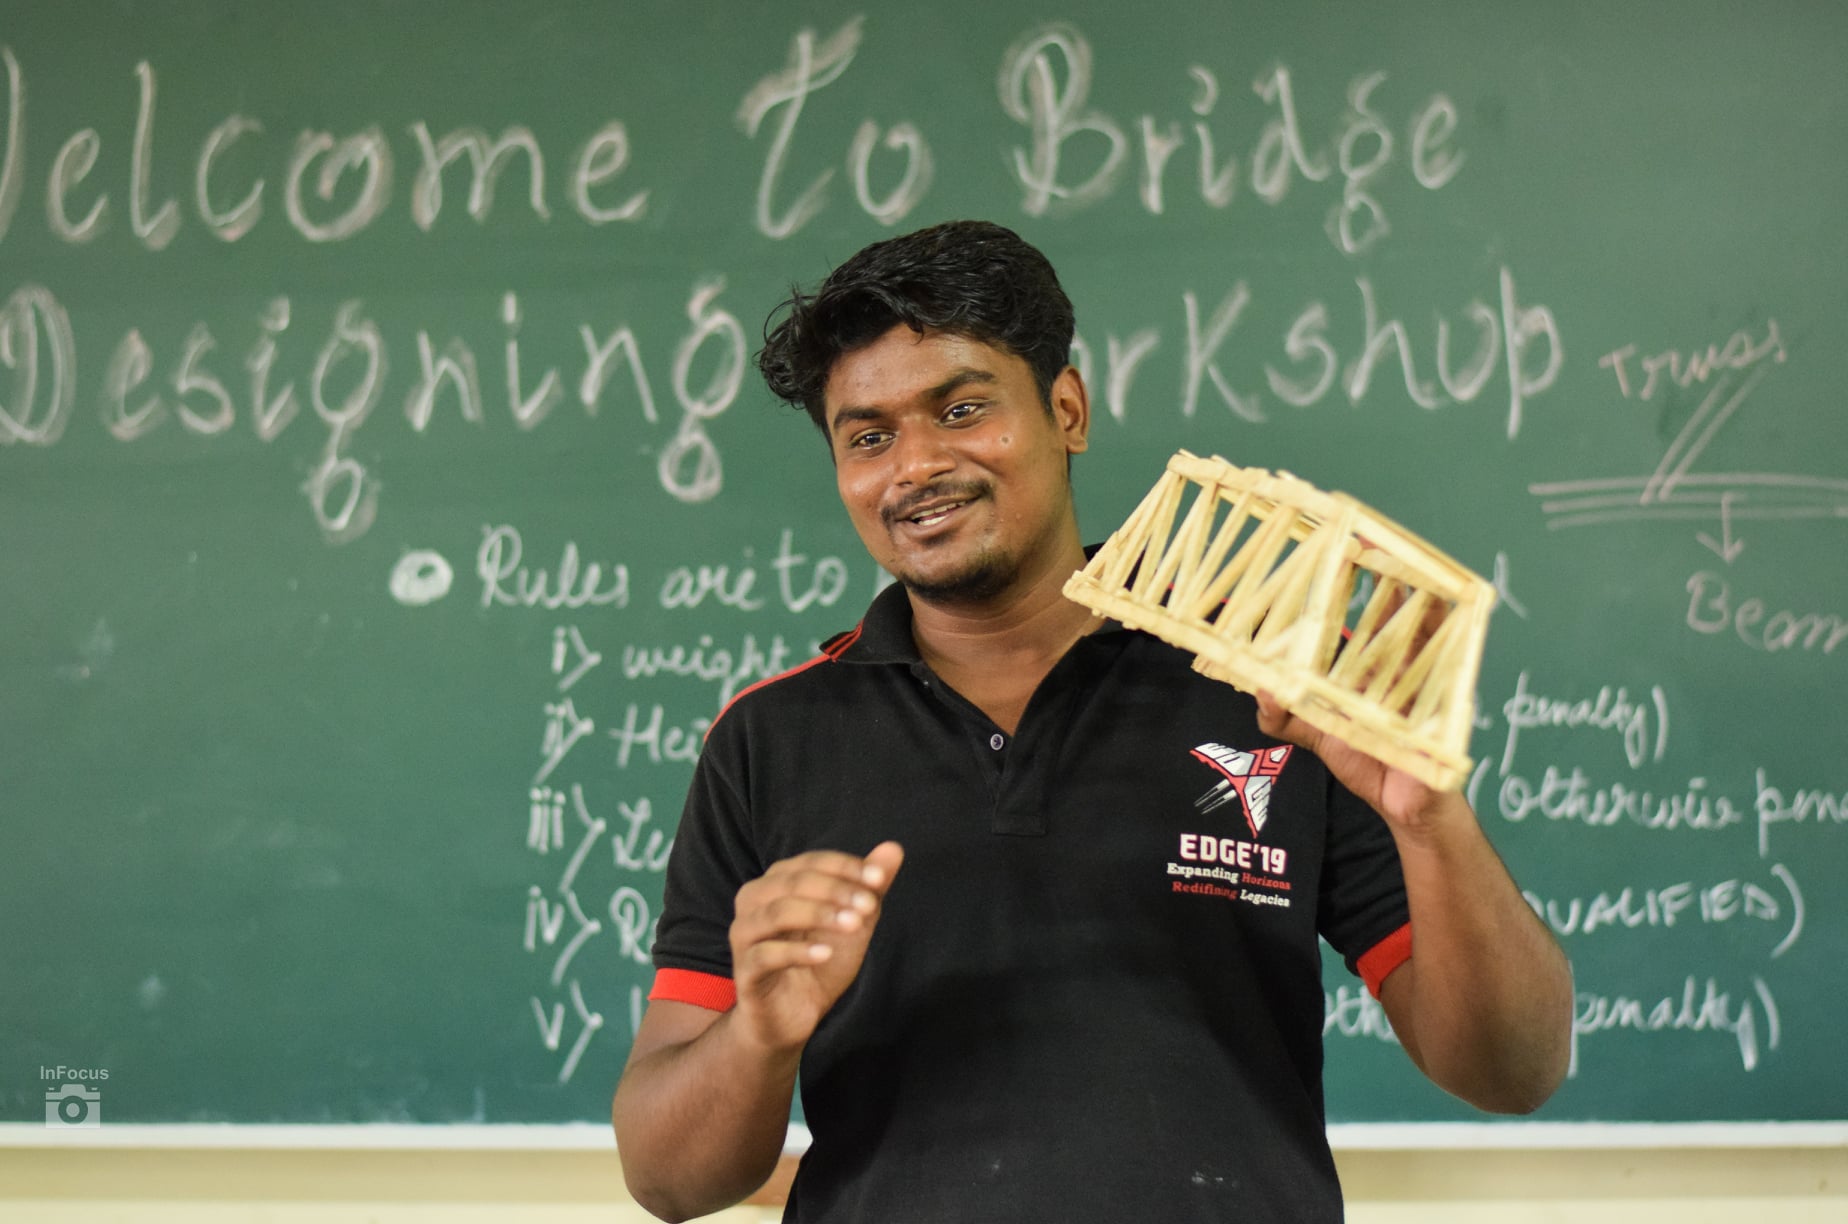 Welcome to Bridge
Designing Workshop
Truss
Beam
Rules are to
i) weight
ii) penalty)
iii) (otherwise
iv) QUALIFIED)
v) penalty)
EDGE'19
Expanding Horizons
Redefining Legacies
InFocus